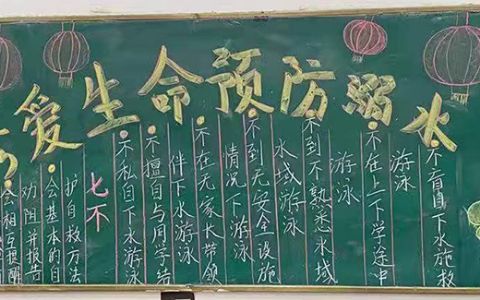 爱生命预防溺水
会相互提醒
劝阻并报告
会基本的自
护自救方法
七不
不私自下水游泳
不擅自与同学结
伴下水游泳
不在无家长带领
情况下游泳
不到无安全设施
水域游泳
不到不熟悉水域
游泳
不在上下学途中
游泳
不盲目下水施救